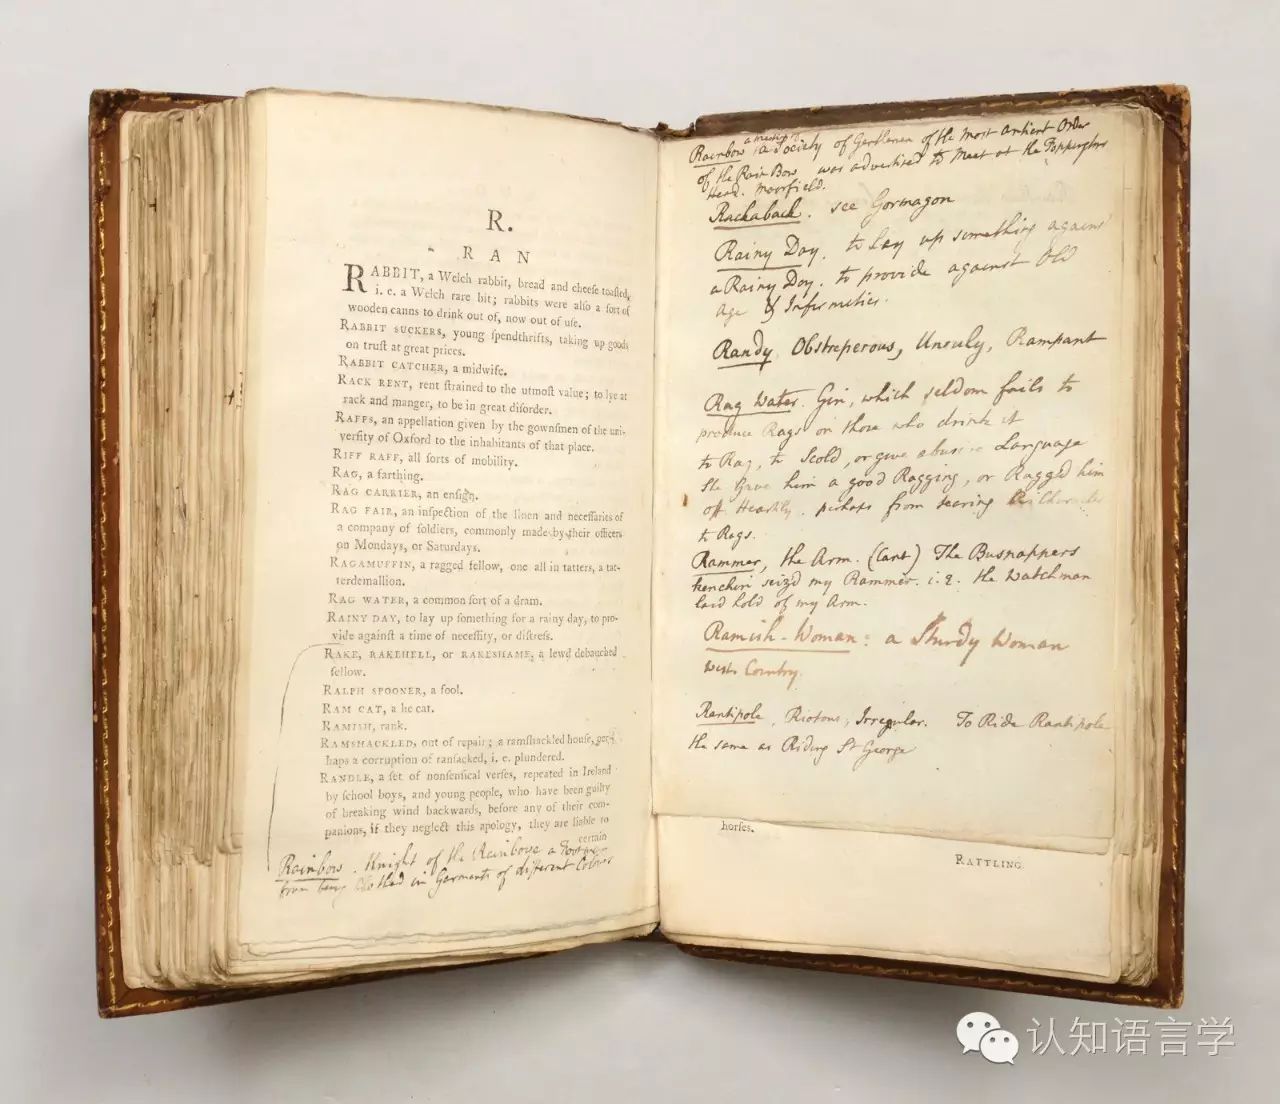 R.
RAN
RABBIT, a Welch rabbit, bread and cheese toasted,
i. e. a Welch rare bit; rabbits were also a sort of
wooden canns to drink out of, now out of use.
RABBIT SUCKERS, young spendthrifts, taking up goods
on trust at great prices.
RABBIT CATCHER, a midwife.
RACK RENT, rent strained to the utmost value; to lye at
rack and manger, to be in great disorder.
RAFFS, an appellation given by the gownsmen of the uni-
versity of Oxford to the inhabitants of that place.
RIFF RAFF, all sorts of mobility.
RAG, a farthing.
RAG CARRIER, an ensign.
RAG FAIR, an inspection of the linen and necessaries of
a company of soldiers, commonly made by their officers
on Mondays, or Saturdays.
RAGAMUFFIN, a ragged fellow, one all in tatters, a tat-
terdemallion.
RAG WATER, a common sort of a dram.
RAINY DAY, to lay up something for a rainy day, to pro-
vide against a time of necessity, or distress.
RAKE, RAKEHELL, or RAKESHAME, a lewd debauched
fellow.
RALPH SPOONER, a fool.
RAM CAT, a he cat.
RAMISH, rank.
RAMSHACKLED, out of repair; a ramshackled house, per-
haps a corruption of ransacked, i. e. plundered.
RANDLE, a set of nonsensical verses, repeated in Ireland
by school boys, and young people, who have been guilty
of breaking wind backwards, before any of their com-
panions, if they neglect this apology, they are liable to
certain
Rainbow. Knight of the Rainbowe a Footman
from being Clothed in Garments of different Colours
a meeting of
Rainbow a Society of Gentlemen of the most Antient Order
of the Rain Bow was advertised to meet at the
Head. Moorfield.
Rackaback. see Gormagon
Rainy Day. to Lay up something against
a Rainy Day. to provide against Old
Age & Infirmities.
Randy. Obstreperous, Unruly, Rampant
Rag Water. Gin, which seldom fails to
produce Rags on those who drink it
to Rag, to Scold, or give abusive Language
She Gave him a good Ragging, or Ragged him
off Heartily. perhaps from tearing
to Rags.
Rammer, the Arm. (Cant) The Busnappers
kenchin seiz'd my Rammer. i. e. the Watchman
laid hold of my Arm.
Ramish-Woman: a Sturdy Woman
West Country.
Rantipole, Riotous, Irregular. To Ride Rantipole
the same as Riding St George
horses.
RATTLING.
认知语言学